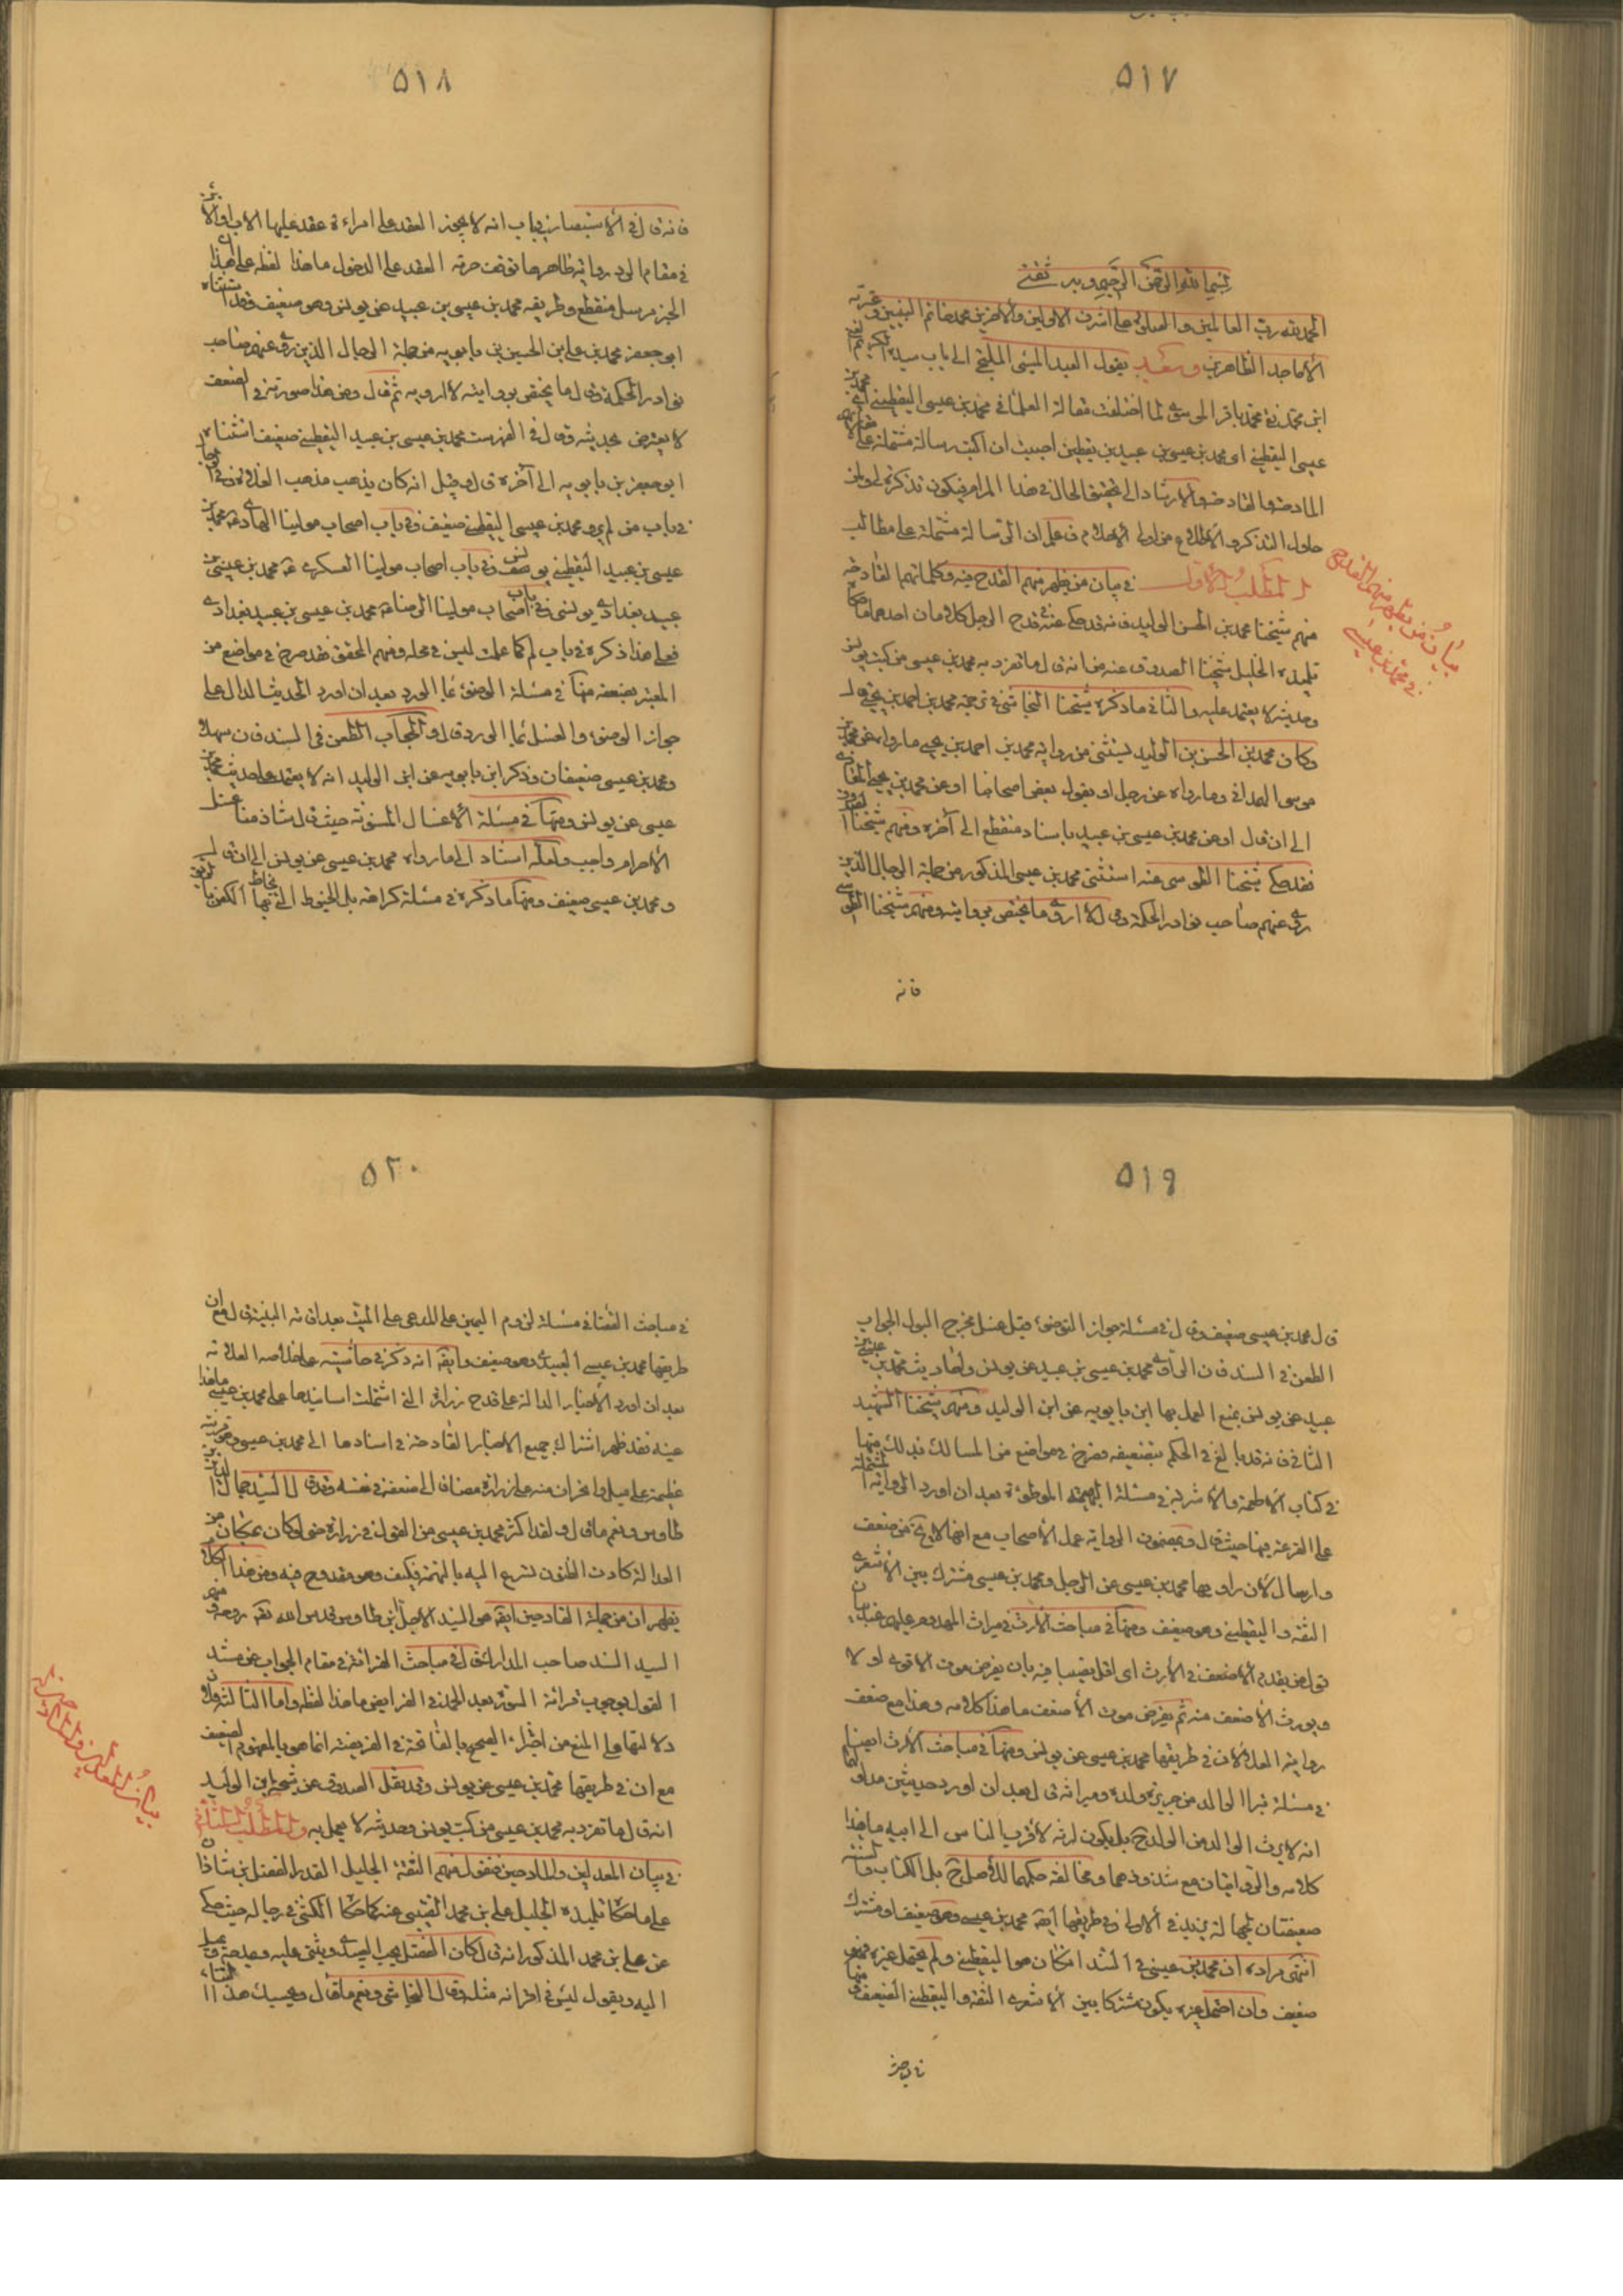 ٥١٧
بسم الله الرحمن الرحيم وبه ثقتي
الحمد لله رب العالمين والصلوة على اشرف الاولين والاخرين محمد خاتم النبيين وعترته
الأماجد الطاهرين وبعد يقول العبد المسئ الملتجئ الى باب سيده الكريم
ابن محمد نقي محمد باقر الموسوي لما اختلفت مقالة العلماء في محمد بن عيسى اليقطيني اعني محمد بن
عيسى اليقطيني اي محمد بن عيسى بن عبيد بن يقطين احببت ان اكتب رسالة مشتملة على مقالاتهم
المادحة والقادحة والارشاد الى تحقيق الحال في هذا المرام فيكون تذكرة لي ولمن
حاول التذكر والاطلاع من اولي الاحلام فاعلم ان الرسالة مشتملة على مطالب
المطلب الاول في بيان من يظهر منهم القدح فيه وكلماتهم القادحة
بيان من يظهر منهم القدح
في محمد بن عيسى
منهم شيخنا محمد بن الحسن الوليد فانه قد حكى عنه في قدح الرجل كلامان احدهما ما حكاه
تلميذه الجليل شيخنا الصدوق عنه من انه قال ما تفرد به محمد بن عيسى من كتب يونس
وحديثه لا يعتمد عليه والثاني ما ذكره شيخنا النجاشي في ترجمة محمد بن احمد بن يحيى قال
وكان محمد بن الحسن بن الوليد يستثنى من رواية محمد بن احمد بن يحيى ما رواه عن محمد بن
موسى الهمداني وما رواه عن رجل او يقول بعض اصحابنا او عن محمد بن يحيى المعاذي
الى ان قال او عن محمد بن عيسى بن عبيد باسناد منقطع الى آخره ومنهم شيخنا الصدوق
فقد حكى شيخنا الطوسي عنه استثنى محمد بن عيسى المذكور من جملة الرجال الذين
روى عنهم صاحب نوادر الحكمة وقال لا اروي ما يختص بروايته ومنهم شيخنا الطوسي
فانه
٥١٨
فانه قال في الاستبصار في باب انه لا يجوز العقد على امراءة عقد عليها الاب او الابن
في مقام الرد رواية ظاهرها توقف حرمة العقد على الدخول ما هذا لفظه على ان هذا
الخبر مرسل منقطع وطريقه محمد بن عيسى بن عبيد عن يونس وهو ضعيف وقد استثناه
ابو جعفر محمد بن علي ابن الحسين بن بابويه من جملة الرجال الذين روى عنهم صاحب
نوادر الحكمة وقال ما يختص بروايته لا ارويه ثم قال ومن هذا صورته في الضعف
لا يعترض بحديثه وقال في الفهرست محمد بن عيسى بن عبيد اليقطيني ضعيف استثناه
ابو جعفر بن بابويه الى آخره قال وقيل انه كان يذهب مذهب الغلاة وفي رجاله
في باب من لم يرو محمد بن عيسى اليقطيني ضعيف وفي باب اصحاب مولينا الهادي محمد بن
عيسى بن عبيد اليقطيني يونسي ضعيف وفي باب اصحاب مولينا العسكري محمد بن عيسى بن
عبيد بغدادي يونسي وفي باب اصحاب مولينا الرضا محمد بن عيسى بن عبيد بغدادي
فعلى هذا ذكره في باب لم كما علمت ليس في محله ومنهم المحقق فقد صرح في مواضع من
المعتبر بضعفه منها في مسئلة الوضوء بماء الورد بعد ان اورد الحديث الدال على
جواز الوضوء والغسل بماء الورد قال والجواب الطعن في السند فان سهلا
ومحمد بن عيسى ضعيفان وذكر ابن بابويه عن ابن الوليد انه لا يعتمد على حديث محمد بن
عيسى عن يونس ومنها في مسئلة الأغسال المسنونة حيث قال شاذ منا غسل
الاحرام واجب ولعله استناد الى ما رواه محمد بن عيسى عن يونس الى ان قال
ومحمد بن عيسى ضعيف ومنها ما ذكره في مسئلة كراهة بل الخيوط التي يخاط بها الكفن بالريق
٥١٩
قال محمد بن عيسى ضعيف وقال في مسئلة جواز التوضوء قبل غسل مخرج البول الجواب
الطعن في السند فان الراوي محمد بن عيسى بن عبيد عن يونس واحاديث محمد بن عيسى بن
عبيد عن يونس يمنع العمل بها ابن بابويه عن ابن الوليد ومنهم شيخنا الشهيد
الثاني فانه قد بالغ في الحكم بتضعيفه وصرح في مواضع من المسالك بذلك منها
في كتاب الاطعمة والاشربة في مسئلة البهيمة الموطوئة بعد ان اورد الرواية المشتملة
على القرعة فيها حيث قال وبمضمون الرواية عمل الاصحاب مع انها لا يخ من ضعف
وارسال لان راويها محمد بن عيسى عن الرجل ومحمد بن عيسى مشترك بين الاشعري
الثقة واليقطيني وهو ضعيف ومنها في مباحث الارث في ميراث المهدوم عليهم عند بيان
قوله من يقدم الاضعف في الارث اي اقل نصيبا فيه بان يفرض موت الاقوى اولا
ويورث الاضعف منه ثم يفرض موت الأضعف ما هذا كلامه وهذا مع ضعف
رواية العلا لان في طريقها محمد بن عيسى عن يونس ومنها في مباحث الارث ايضا
في مسئلة تبرا الوالد من جريرة ولده وميراثه قال بعد ان اورد حديثين مدلولهما
انه لا يرث الوالد من الولد ح بل يكون ارثه لأقرب الناس الى ابيه ما هذا
كلامه والروايتان مع شذوذهما ومخالفة حكمهما للأصل ح بل الكتاب والسنة
ضعيفتان بجهالة يزيد في الاولى وفي طريقها ايضا محمد بن عيسى وهو ضعيف او مشترك
انتهى مراده ان محمد بن عيسى في السند ان كان هو اليقطيني ولم يحتمل غيره فهو
ضعيف وان احتمل غيره يكون مشتركا بين الاشعري الثقة واليقطيني الضعيف ومنها
٥٢٠
في مباحث القضاء في مسئلة لزوم اليمين على المدعي على الميت بعد اقامة البينة قال مع ان
طريقها محمد بن عيسى العبيدي وهو ضعيف وايضا انه ذكر في حاشيته على خلاصة العلامة
بعد ان اورد الأخبار الدالة على قدح زرارة التي اشتملت اسانيدها على محمد بن عيسى ما هذا
عينه فقد ظهر اشتراك جميع الاخبار القادحة في اسنادها الى محمد بن عيسى وهو قرينة
عظيمة على ميل وانحراف منه على زرارة مضافا الى ضعفه في نفسه وقد قال السيد جمال الدين بن
طاوس ونعم ما قال ولقد اكثر محمد بن عيسى من القول في زرارة حتى لو كان بمكان من
العدالة كادت الظنون تسرع اليه بالتهمة فكيف وهو مقدوح فيه ومن هذا الكلام
يظهر ان من جملة القادحين ايضا هو السيد الاجل ابن طاوس قدس الله تعالى روحه ومنهم
السيد السند صاحب المدارك قال في مباحث القرائة في مقام الجواب عن مستند
القول بوجوب قرائة السورة بعد الحمد في الفرايض ما هذا لفظه واما الثالثة فلان
دلالتها على المنع من اجتزاء الصحيح بالفاتحة في الفريضة انما هو بالمفهوم الضعيف
مع ان في طريقها محمد بن عيسى عن يونس وقد نقل الصدوق عن شيخه ابن الوليد
انه قال ما تفرد به محمد بن عيسى من كتب يونس وحديثه لا يعمل به والمطلب الثاني
في بيان المعدلين والمادحين فنقول منهم الثقة الجليل القدر الفضل بن شاذان
على ما حكاه تلميذه الجليل علي بن محمد القتيبي عنه كما حكاه الكشي في رجاله حيث حكى
عن علي بن محمد المذكور انه قال كان الفضل يحب العبيدي ويثني عليه ويمدحه ويميل
اليه ويقول ليس في اقرانه مثله وقال النجاشي ونعم ما قال وبحسبك هذا الثناء